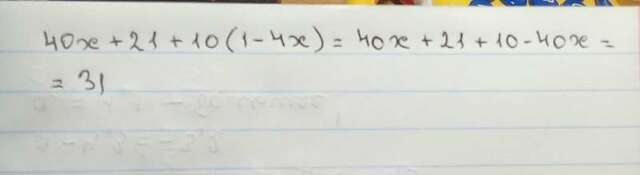 40x + 21 + 10(1-4x) = 40x + 21 + 10 - 40x =
= 31